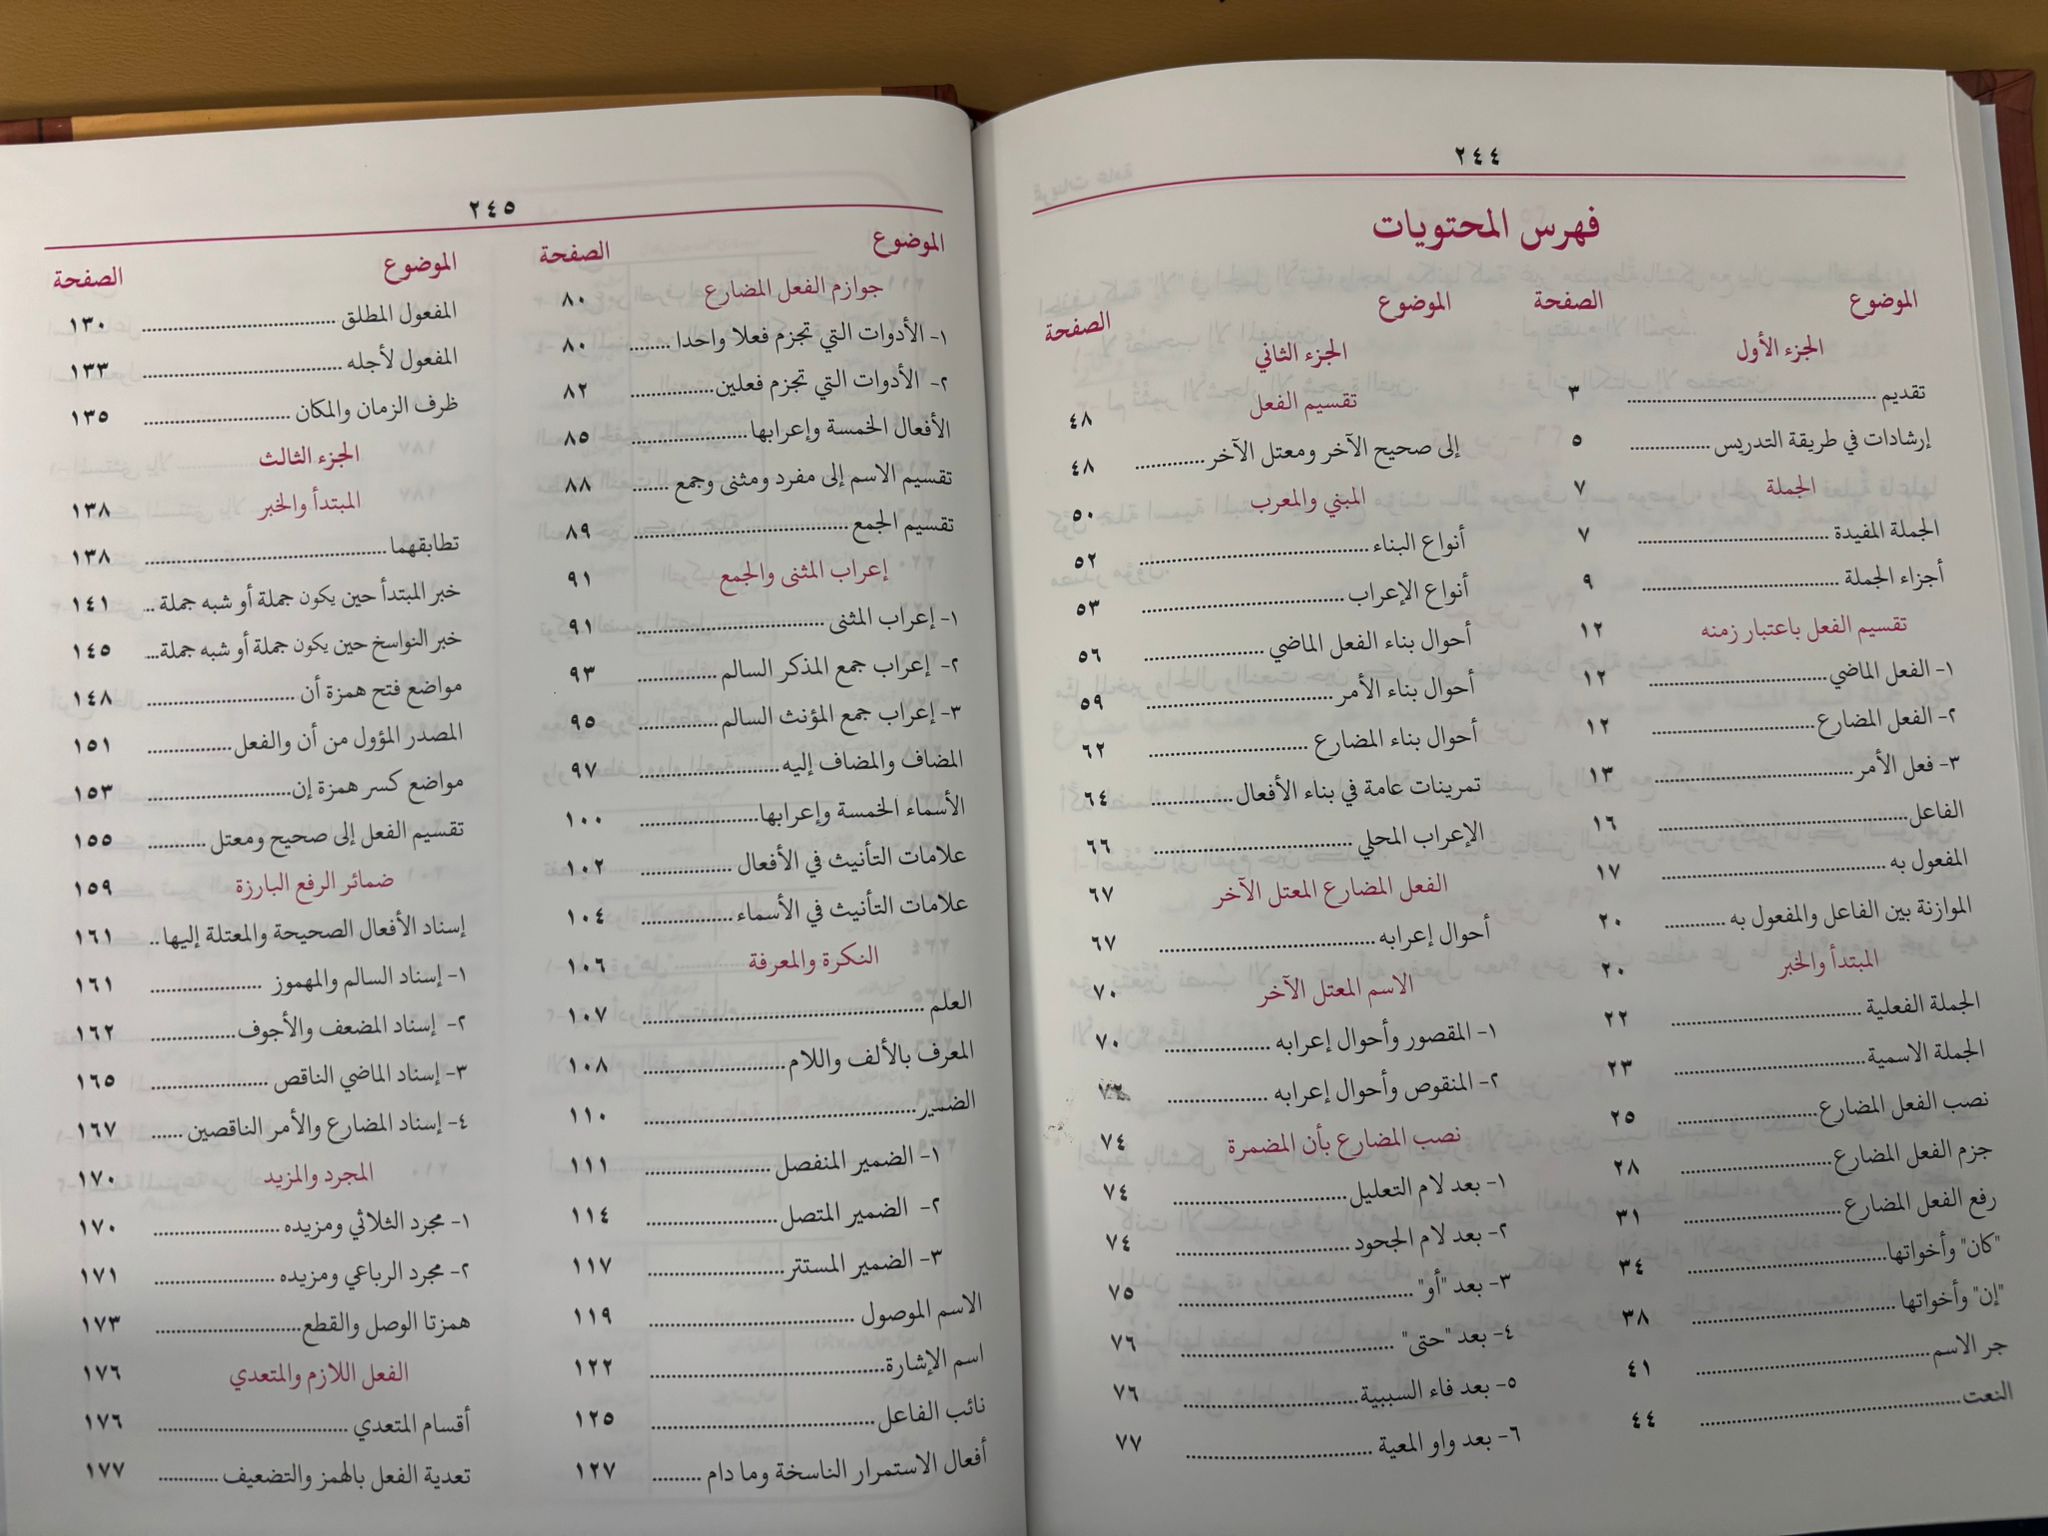 ٢٤٤
فهرس المحتويات
الموضوع الصفحة
الجزء الأول
تقديم ................ ٣
إرشادات في طريقة التدريس ................ ٥
الجملة ٧
الجملة المفيدة ................ ٧
أجزاء الجملة ................ ٩
تقسيم الفعل باعتبار زمنه ١٢
١- الفعل الماضي ................ ١٢
٢- الفعل المضارع ................ ١٢
٣- فعل الأمر ................ ١٣
الفاعل ................ ١٦
المفعول به ................ ١٧
الموازنة بين الفاعل والمفعول به ........... ٢٠
المبتدأ والخبر ٢٠
الجملة الفعلية ................ ٢٢
الجملة الاسمية ................ ٢٣
نصب الفعل المضارع ................ ٢٥
جزم الفعل المضارع ................ ٢٨
رفع الفعل المضارع ................ ٣١
"كان" وأخواتها ................ ٣٤
"إن" وأخواتها ................ ٣٨
جر الاسم ................ ٤١
النعت ................ ٤٤
الموضوع الصفحة
الجزء الثاني
تقسيم الفعل ٤٨
إلى صحيح الآخر ومعتل الآخر ............ ٤٨
المبني والمعرب ٥٠
أنواع البناء ................ ٥٢
أنواع الإعراب ................ ٥٣
أحوال بناء الفعل الماضي ................ ٥٦
أحوال بناء الأمر ................ ٥٩
أحوال بناء المضارع ................ ٦٢
تمرينات عامة في بناء الأفعال ............ ٦٤
الإعراب المحلي ................ ٦٦
الفعل المضارع المعتل الآخر ٦٧
أحوال إعرابه ................ ٦٧
الاسم المعتل الآخر ٧٠
١- المقصور وأحوال إعرابه ................ ٧٠
٢- المنقوص وأحوال إعرابه ................
نصب المضارع بأن المضمرة ٧٤
١- بعد لام التعليل ................ ٧٤
٢- بعد لام الجحود ................ ٧٤
٣- بعد "أو" ................ ٧٥
٤- بعد "حتى" ................ ٧٦
٥- بعد فاء السببية ................ ٧٦
٦- بعد واو المعية ................ ٧٧
٢٤٥
الموضوع الصفحة
جوازم الفعل المضارع ٨٠
١- الأدوات التي تجزم فعلا واحدا ........ ٨٠
٢- الأدوات التي تجزم فعلين ............ ٨٢
الأفعال الخمسة وإعرابها ................ ٨٥
تقسيم الاسم إلى مفرد ومثنى وجمع ....... ٨٨
تقسيم الجمع ................ ٨٩
إعراب المثنى والجمع ٩١
١- إعراب المثنى ................ ٩١
٢- إعراب جمع المذكر السالم ............ ٩٣
٣- إعراب جمع المؤنث السالم ............ ٩٥
المضاف والمضاف إليه ................ ٩٧
الأسماء الخمسة وإعرابها ................ ١٠٠
علامات التأنيث في الأفعال ................ ١٠٢
علامات التأنيث في الأسماء ................ ١٠٤
النكرة والمعرفة ١٠٦
العلم ................ ١٠٧
المعرف بالألف واللام ................ ١٠٨
الضمير ................ ١١٠
١- الضمير المنفصل ................ ١١١
٢- الضمير المتصل ................ ١١٤
٣- الضمير المستتر ................ ١١٧
الاسم الموصول ................ ١١٩
اسم الإشارة ................ ١٢٢
نائب الفاعل ................ ١٢٥
أفعال الاستمرار الناسخة وما دام ......... ١٢٧
الموضوع الصفحة
المفعول المطلق ................ ١٣٠
المفعول لأجله ................ ١٣٣
ظرف الزمان والمكان ................ ١٣٥
الجزء الثالث
المبتدأ والخبر ١٣٨
تطابقهما ................ ١٣٨
خبر المبتدأ حين يكون جملة أو شبه جملة ... ١٤١
خبر النواسخ حين يكون جملة أو شبه جملة ... ١٤٥
مواضع فتح همزة أن ................ ١٤٨
المصدر المؤول من أن والفعل ................ ١٥١
مواضع كسر همزة إن ................ ١٥٣
تقسيم الفعل إلى صحيح ومعتل ........... ١٥٥
ضمائر الرفع البارزة ١٥٩
إسناد الأفعال الصحيحة والمعتلة إليها .. ١٦١
١- إسناد السالم والمهموز ................ ١٦١
٢- إسناد المضعف والأجوف ................ ١٦٢
٣- إسناد الماضي الناقص ................ ١٦٥
٤- إسناد المضارع والأمر الناقصين ...... ١٦٧
المجرد والمزيد ١٧٠
١- مجرد الثلاثي ومزيده ................ ١٧٠
٢- مجرد الرباعي ومزيده ................ ١٧١
همزتا الوصل والقطع ................ ١٧٣
الفعل اللازم والمتعدي ١٧٦
أقسام المتعدي ................ ١٧٦
تعدية الفعل بالهمز والتضعيف ........... ١٧٧